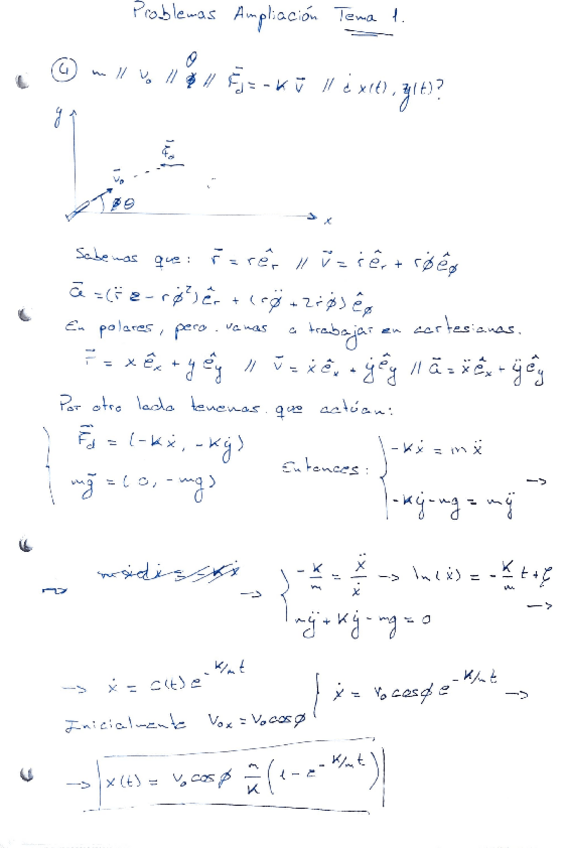 Problemas Ampliación Tema 1.
④ m // v₀ // θ // F⃗d = -K v⃗ // ¿x(t), y(t)?
y
F⃗d
v⃗₀
θ
x
Sabemos que: r⃗ = r ê_r // v⃗ = ṙ ê_r + rφ̇ ê_φ
a⃗ = (r̈ - rφ̇²) ê_r + (rφ̈ + 2ṙφ̇) ê_φ
En polares, pero vamos a trabajar en cartesianas.
r⃗ = x ê_x + y ê_y // v⃗ = ẋ ê_x + ẏ ê_y // a⃗ = ẍ ê_x + ÿ ê_y
Por otro lado tenemos que actúan:
F⃗d = (-Kẋ, -Kẏ)
mg⃗ = (0, -mg)
Entonces: { -Kẋ = mẍ
-Kẏ - mg = mÿ →
→ { -K/m = ẍ/ẋ → ln(ẋ) = -K/m t + C
mÿ + Kẏ - mg = 0 →
→ ẋ = c(t) e^(-K/m t)
Inicialmente v₀ₓ = v₀ cosφ } ẋ = v₀ cosφ e^(-K/m t) →
→ x(t) = v₀ cosφ m/K (1 - e^(-K/m t))